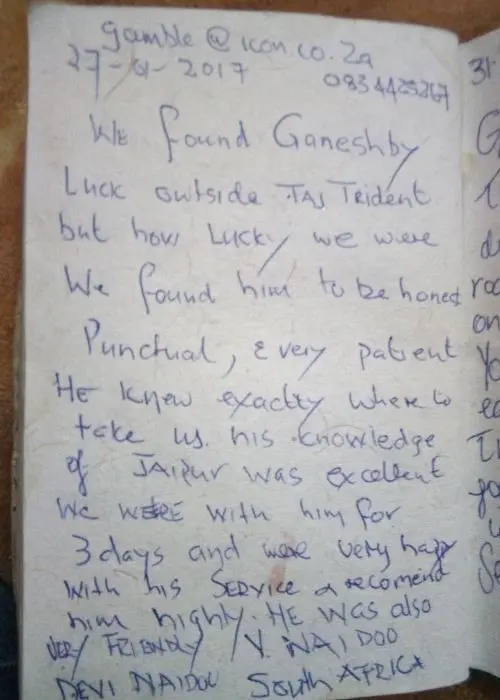 gamble@icon.co.za
27-01-2017 0834425267
We found Ganesh by
Luck outside TAJ Trident
but how Lucky we were
We found him to be honest
Punctual, & very patient
He knew exactly where to
take us. his knowledge
of JAIPUR was excellent
We WERE with him for
3 days and were very happy
with his SERVICE & recomend
him highly. HE WAS also
VERY FRIENDLY / V. NAIDOO
DEVI NAIDOO SOUTH AFRICA
31